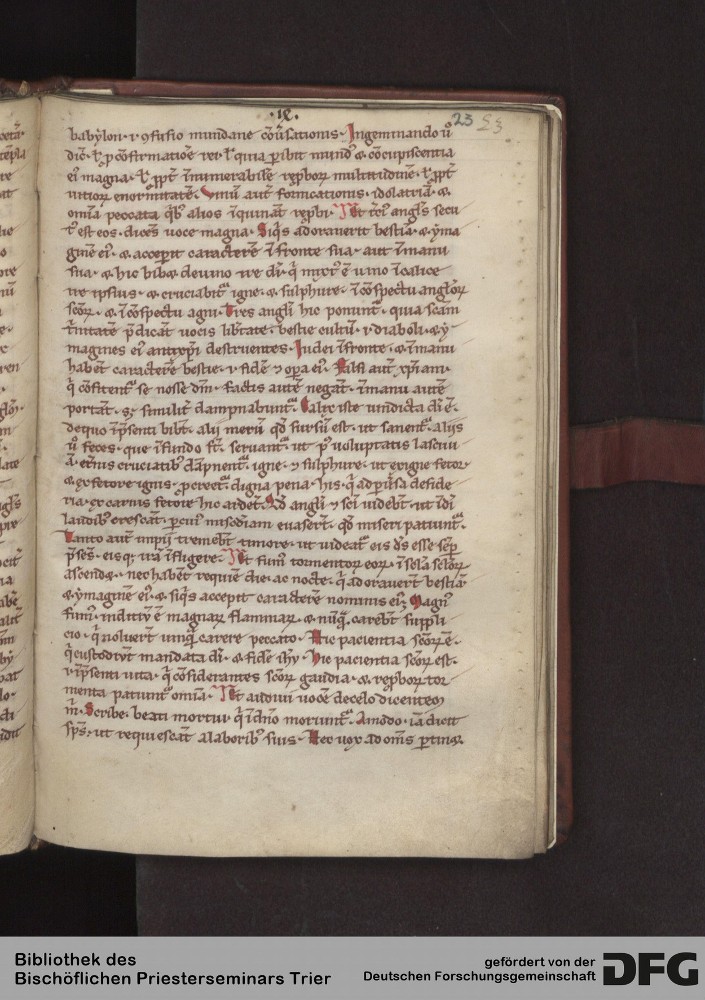 ·ix·
23 53
babylon· ⁊ ꝯfusio mundane cōūsationis· Ingeminando ū
dic̄· ł ꝓ cōfirmatiōe rei· ł quia ꝑibit mundꝰ & cōcupiscentia
eiꝰ magna· ł ꝓpt̄ īnumerabilē reꝓboꝝ multitudinē· ł ꝓpt̄
uitioꝝ enormitatē· Vinū aut̄ fornicationis· idolatriā· &
om̄ia peccata qͥbꝰ alios īquināt reꝓbi· Et t̄ciꝰ angl̄s secu
tꝰ est eos· dicēs uoce magna· Siqͥs adorauerit bestiā· & yma
ginē eiꝰ· & acceperit caracterē ī fronte sua· aut ī manu
sua· & hic bibet de uino ire dī· qͥ mixtꝰ ē uino ī calice
ire ipsius· & cruciabit᷑ igne· & sulphure· ī cōspectu angl̄oꝝ
scōꝝ· & ī cōspectu agni· Tres angl̄i hic ponunt᷑· quia scam
t̄nitatē p̄dicāt uocis lib̄tate· bestie cultū· ⁊ diaboli· & y
magines eiꝰ antixp̄i destruentes· Iudei ī fronte· & ī manu
habēt caracterē bestie· ⁊ fidē ⁊ oꝑa eiꝰ· Falsi aut̄ xp̄iani·
qͥ cōfitent᷑ se nosse dm̄· factis autē negāt· ī manu autē
portāt· sꝫ similit̄ dampnabunt᷑· Calix iste uindicta dī ē·
de quo ī p̄senti bibt̄· alij merū qd̄ sursū est· ut sanent᷑· alijs
ū feces· que ī fundo st̄· seruant᷑· ut p̄ uoluptatis lasciui
ā· et̄nis cruciatibꝰ dāpnent᷑· igne· ⁊ sulphure· ut ex igne fetor
& ex fetore ignis· ꝓcreet᷑· digna pena· his· qͥ ad ꝑūsa deside
ria· ex carnis fetore hic ardēt· Qd̄ angl̄i ⁊ sc̄i uidebt̄· ut ī dī
laudibꝰ crescāt· ꝑ cuiꝰ misc̄diam euasert̄· qd̄ miseri patiunt᷑·
Tanto aut̄ impij tremebt̄ timore· ut uideat᷑ eis ds̄ esse semꝑ
p̄sēs· eisqꝫ irā īfligere· Et fumꝰ tormentoꝝ eoꝝ· ī scl̄a scl̄oꝝ
ascendet· nec habēt requiē die· ac nocte· qͥ adorauert̄ bestiā
& ymaginē eiꝰ· & siqͥs accepit caracterē nominis eiꝰ· Magnꝰ
fumꝰ· inditiū ē magnaꝝ flammaꝝ· & nūqͣ carebt̄ suppli
cio· qͥ noluert̄ unqͣ carere peccato· Hic pacientia scōꝝ ē·
qͥ custodiūt mandata dī· & fidē ih̄u· Hic pacientia scōꝝ est·
⁊ ī p̄senti uita· qͥ cōsiderantes scōꝝ gaudia· & reꝓboꝝ tor
menta patiunt᷑ om̄ia· Et audiui uocē de celo dicentem
m̄· Scribe· beati mortui qͥ ī dn̄o moriunt᷑· Amodo· iā dicit
sps̄· ut requiescāt a laboribꝰ suis· Hec uox ad om̄s ꝑtinꝫ
Bibliothek des
Bischöflichen Priesterseminars Trier
gefördert von der
Deutschen Forschungsgemeinschaft
DFG